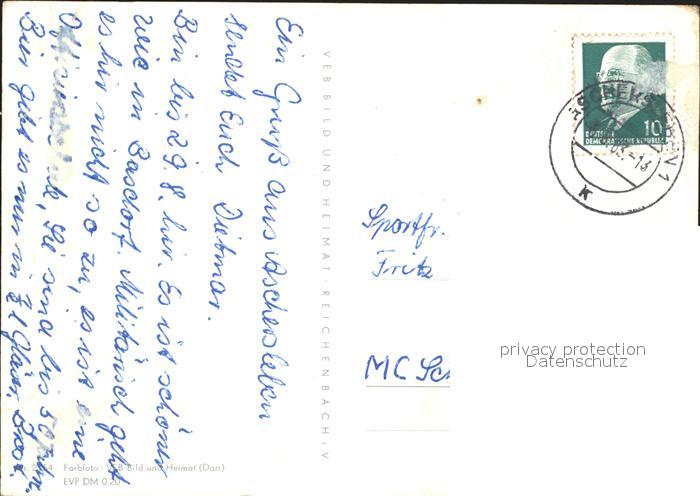 Ein Gruß aus Aschersleben
sendet Euch Dietmar.
Bin bis 29.8. hir. Es ist schöner
wie in Basdorf. Militärisch geht
es hir nicht so zu, es ist eine
Offiziersschule, Sie sind bis 50 Jahr.
Bier gibt es nur in Gläser,
VEB BILD UND HEIMAT · REICHENBACH i. V.
Farbfoto: VEB Bild und Heimat (Darr)
EVP DM 0,20
10
DEUTSCHE
DEMOKRATISCHE REPUBLIK
ASCHERSLEBEN 1
-13
K
Sportfr.
Fritz
MC Sc
privacy protection
Datenschutz